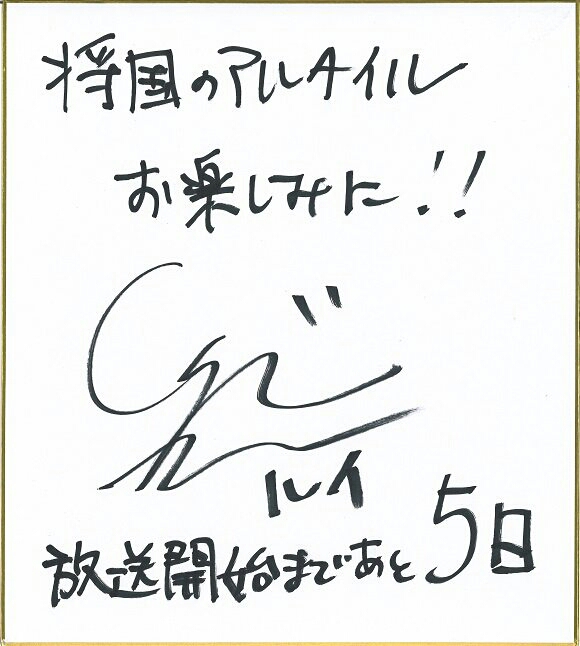 将国のアルタイル
お楽しみに!!
ルイ
放送開始まであと5日